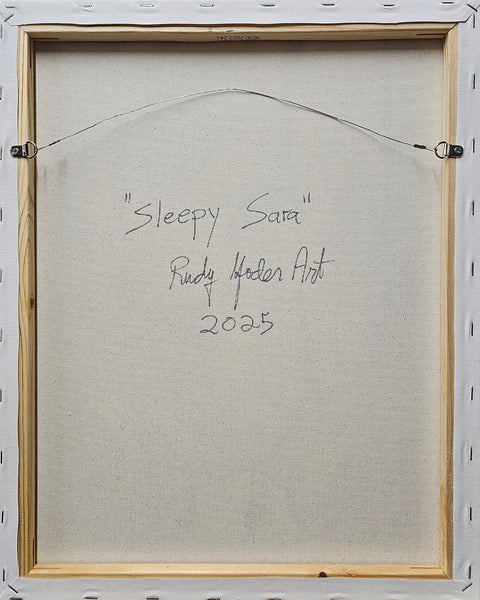 "Sleepy Sara"
Rudy Yoder Art
2025